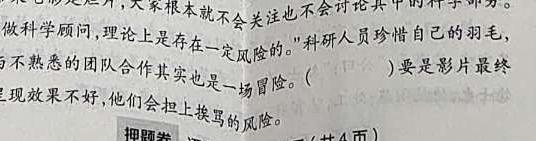 电影是烂片，大家根本就不会关注也不会讨论其中的科学部分。
做科学顾问，理论上是存在一定风险的。”科研人员珍惜自己的羽毛，
与不熟悉的团队合作其实也是一场冒险。(　　　)要是影片最终
呈现效果不好，他们会担上挨骂的风险。
押题卷 (共4页)